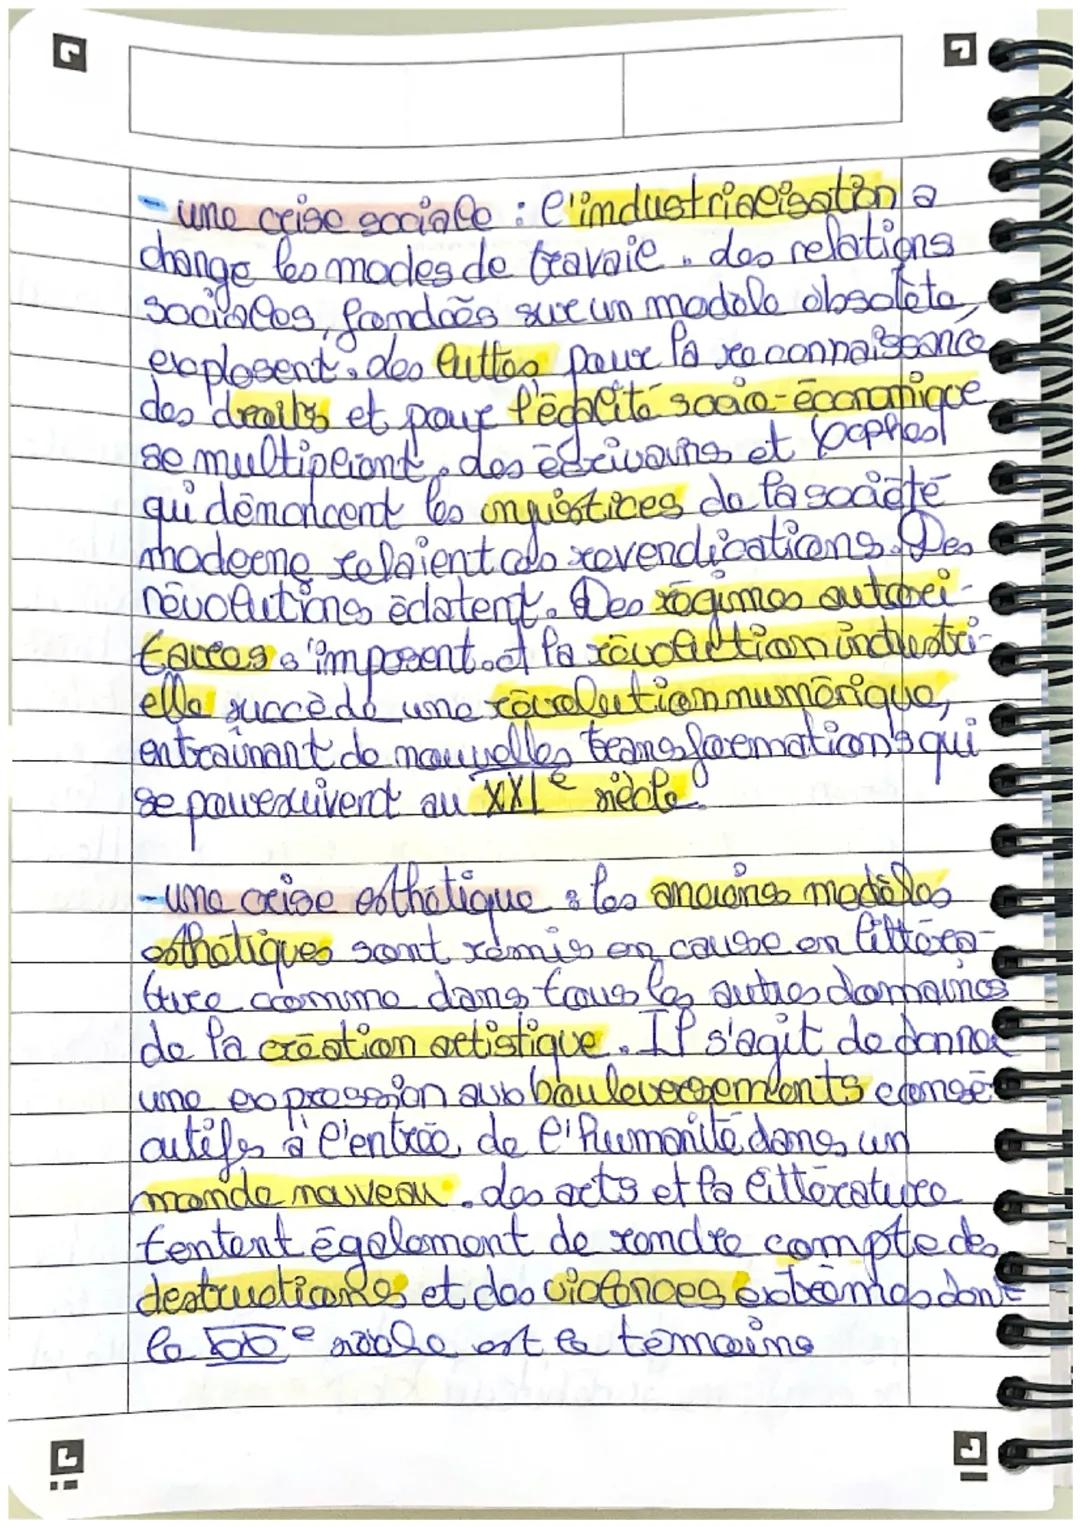 - une crise sociale : l'industrialisation a
change les modes de travail. des relations
sociales, fondées sur un modèle obsolète,
explosent. des luttes pour la reconnaissance
des droits et pour l'égalité socio-économique
se multiplient. des écrivains et
qui dénoncent les injustices de la société
moderne relaient ces revendications. Des
révolutions éclatent. Des régimes autori-
taires s'imposent. et la révolution industri-
elle succède une révolution numérique,
entraînant de nouvelles transformations qui
se poursuivent au XXIe siècle.
- une crise esthétique : les anciens modèles
esthétiques sont remis en cause en littéra-
ture comme dans tous les autres domaines
de la création artistique. Il s'agit de donner
une expression aux bouleversements consé-
cutifs à l'entrée de l'humanité dans un
monde nouveau. des arts et la littérature
tentent également de rendre compte des
destructions et des violences extrêmes dont
le XXe siècle est le témoins